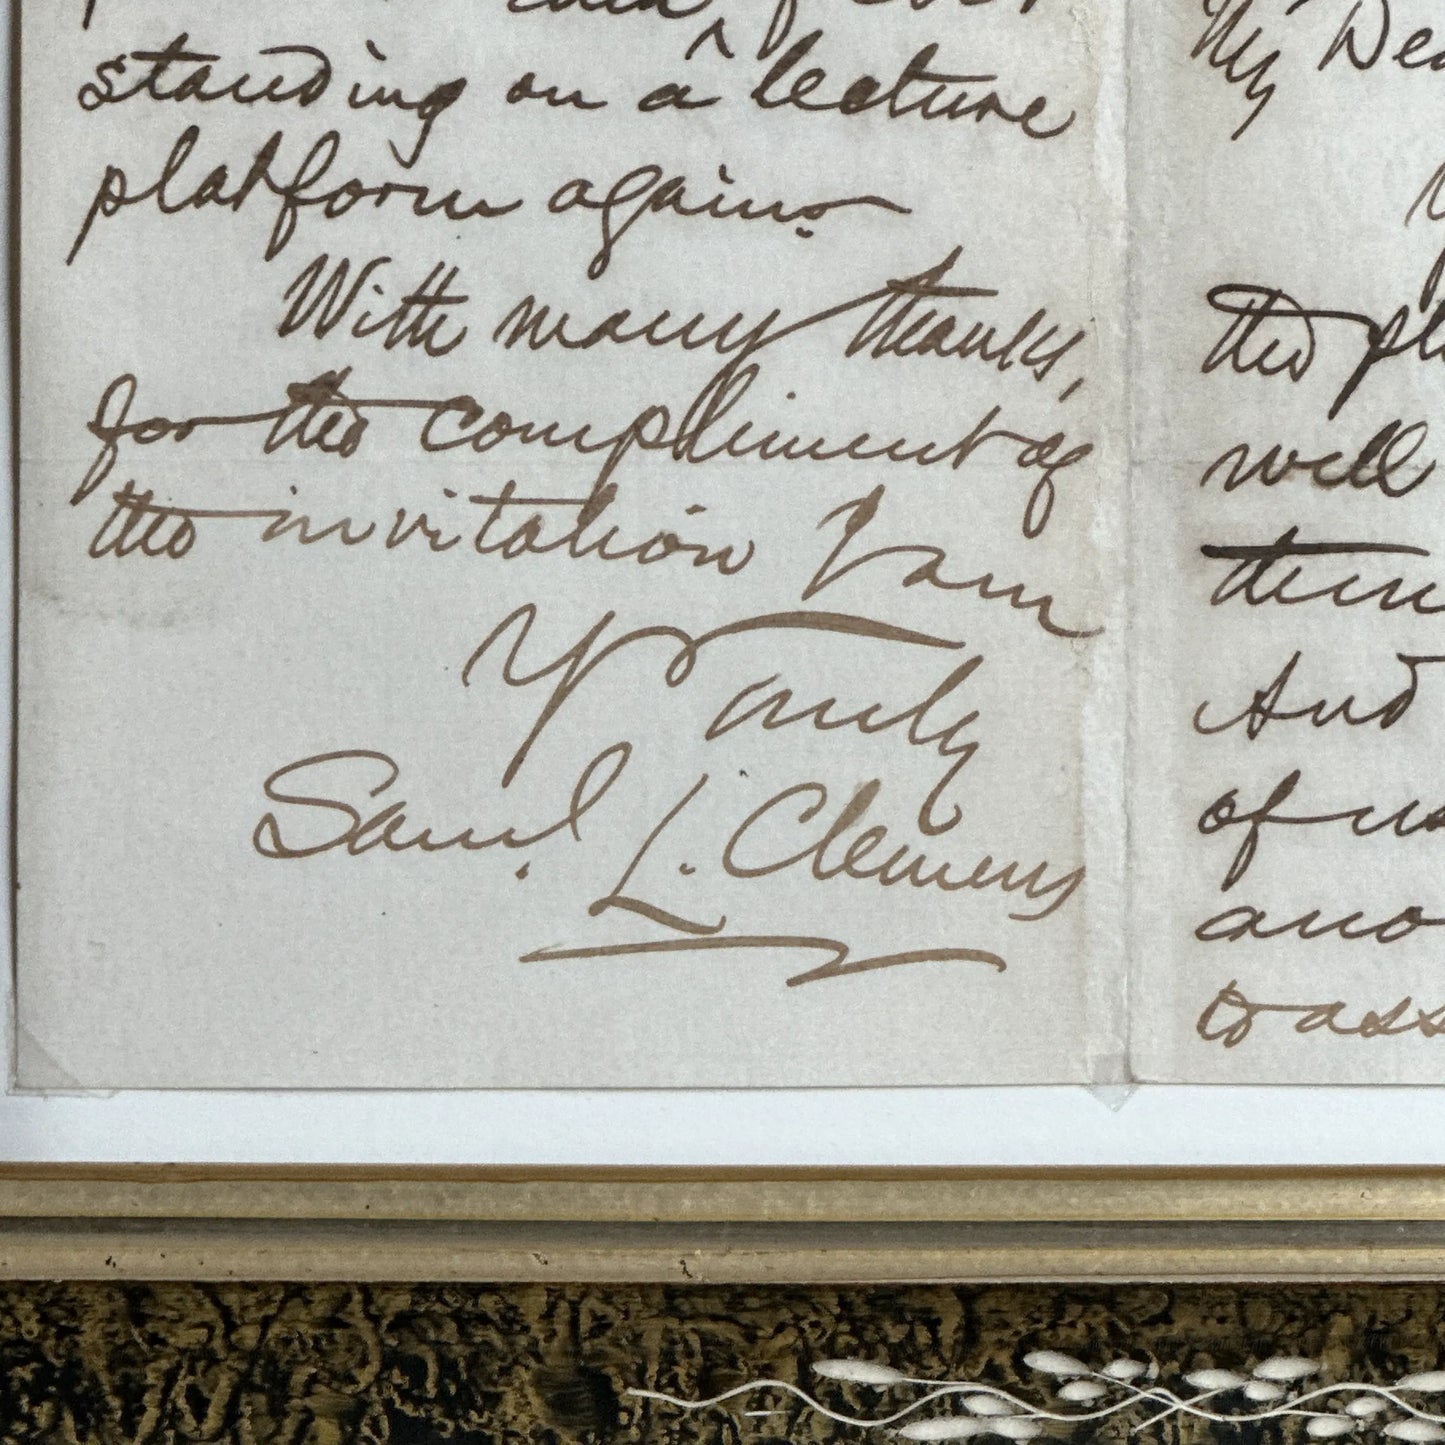 standing on a lecture
platform again.
With many thanks,
for the compliment of
the invitation I am
Yrs Truly
Saml. L. Clemens
My Dea
the pl
well
them
And
of
ano
to ass